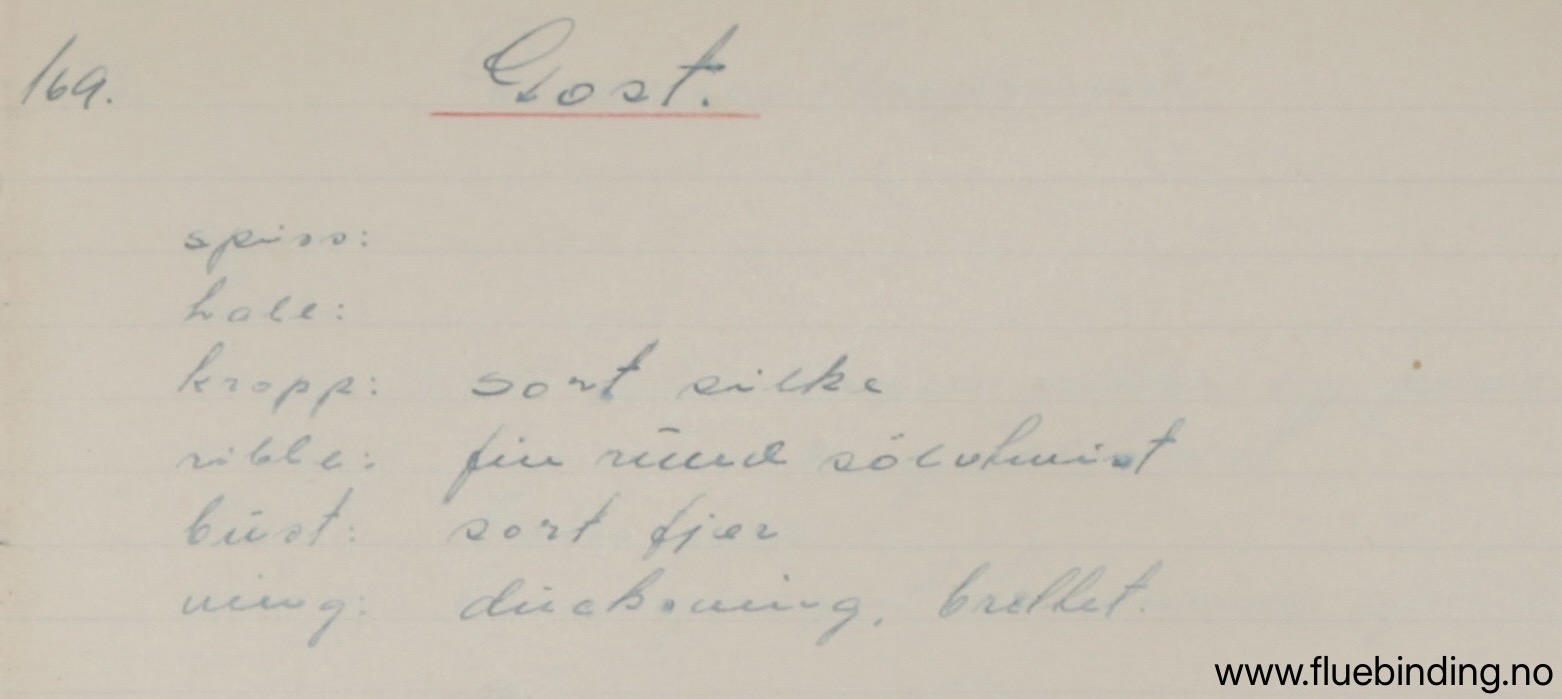 169. Gost.
spiss:
hale:
kropp: sort silke
ribbe: fin rund sölvtvist
bust: sort fjær
ving: duckwing, brettet.
www.fluebinding.no